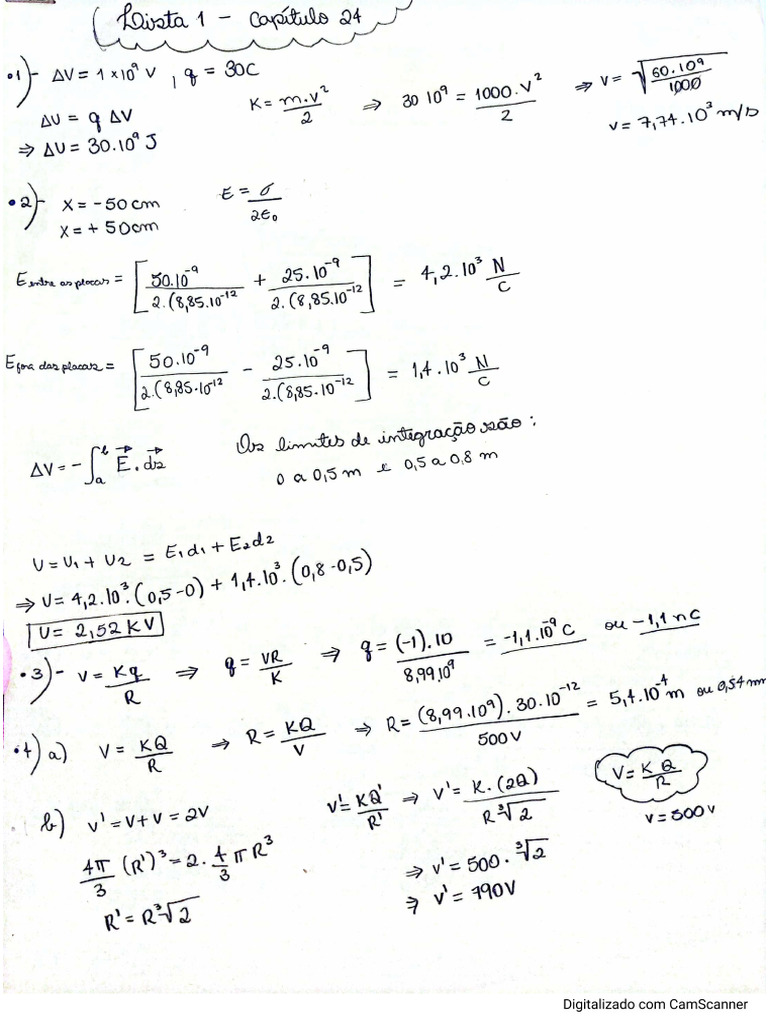 Lista 1 - Capítulo 24
•1)- ΔV = 1×10⁹ V , q = 30C
ΔU = q ΔV
⇒ ΔU = 30.10⁹ J
K = m.v²/2 ⇒ 30 10⁹ = 1000.V²/2 ⇒ V = √(60.10⁹/1000)
V = 7,74.10³ m/s
•2)- X = -50cm
X = + 50cm
E = σ/2ε₀
E entre as placas = [50.10⁻⁹/2.(8,85.10⁻¹² + 25.10⁻⁹/2.(8,85.10⁻¹²] = 4,2.10³ N/C
E fora das placas = [50.10⁻⁹/2.(8,85.10⁻¹² - 25.10⁻⁹/2.(8,85.10⁻¹²] = 1,4.10³ N/C
ΔV = -∫ₐᵇ E⃗ . ds⃗
Os limites de integração são:
0 a 0,5 m e 0,5 a 0,8 m
U = U₁ + U₂ = E₁d₁ + E₂d₂
⇒ U = 4,2.10³.(0,5-0) + 1,4.10³.(0,8-0,5)
U = 2,52 KV
•3)- V = Kq/R ⇒ q = VR/K ⇒ q = (-1).10/8,99.10⁹ = -1,1.10⁻⁹ C ou -1,1 nC
•4) a) V = KQ/R ⇒ R = KQ/V ⇒ R = (8,99.10⁹).30.10⁻¹²/500V = 5,4.10⁻⁴ m ou 0,54 mm
b) V' = V + V = 2V
4π/3 (R')³ = 2.4/3 π R³
R' = R ∛2
V' = KQ'/R' ⇒ V' = K.(2Q)/R∛2
⇒ V' = 500.∛2
⇒ V' = 790V
V = K Q/R
V = 500V
Digitalizado com CamScanner